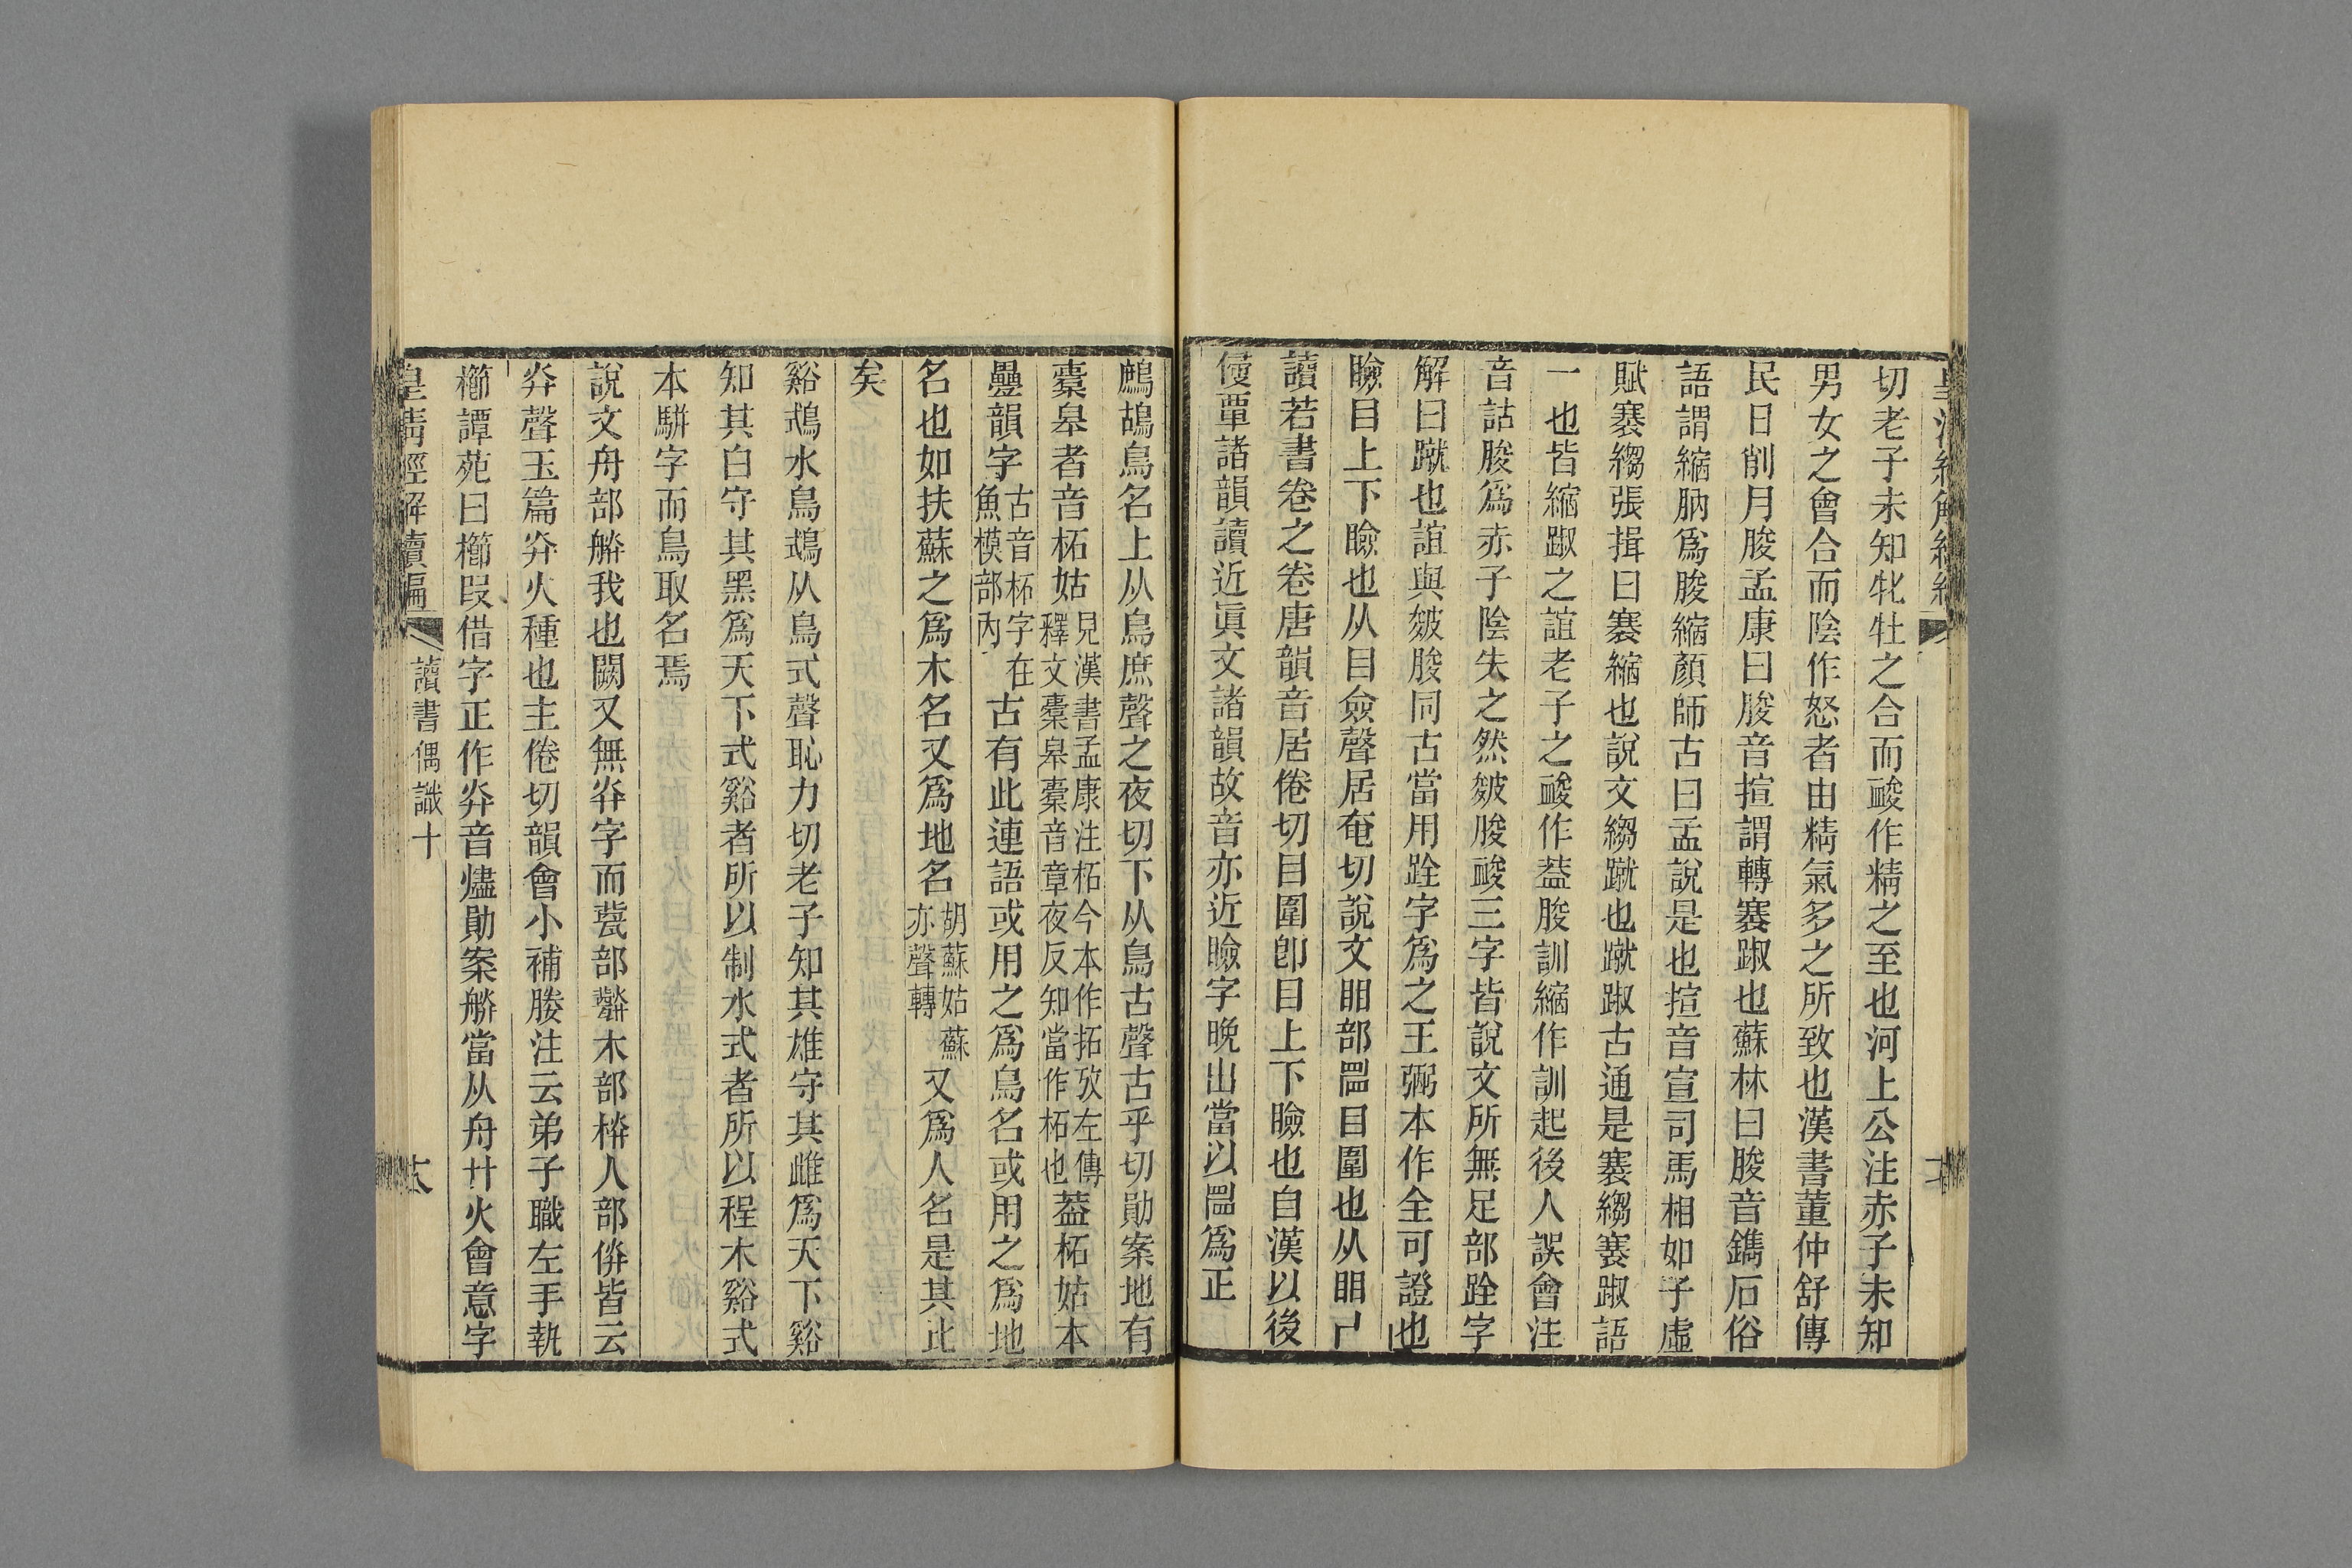 切老子未知牝牡之合而㕙作精之至也河上公注赤子未知
男女之會合而陰作怒者由精氣多之所致也漢書董仲舒傳
民日削月朘孟康曰朘音揎謂轉蹇踧也蘇林曰朘音鐫石俗
語謂縮朒爲朘縮顏師古曰孟說是也揎音宣司馬相如子虛
賦蹇縐張揖曰蹇縮也說文縐蹴也蹴踧古通是蹇縐蹇踧語
一也皆縮踧之誼老子之㕙作葢朘訓縮作訓起後人誤會注
音詁朘爲赤子陰失之然皴朘㕙三字皆說文所無足部跧字
解曰蹴也誼與皴朘同古當用跧字爲之王弼本作全可證也
瞼目上下瞼也从目僉聲居奄切說文䀠部目圍也从䀠
讀若書卷之卷唐韻音居倦切目圍卽目上下瞼也自漢以後
㑴覃諸韻讀近眞文諸韻故音亦近瞼字晚出當以爲正
鷓鴣鳥名上从鳥庶聲之夜切下从鳥古聲古乎切勛案地有
橐皋者音柘姑見漢書孟康注柘今本作拓攷左傳釋文橐皋橐音章夜反知當作柘也葢柘姑本
疊韻字古音柘字在魚模部內古有此連語或用之爲鳥名或用之爲地
名也如扶蘇之爲木名又爲地名胡蘇姑蘇亦聲轉又爲人名是其比
矣
谿鵡水鳥鵡从鳥式聲恥力切老子知其雄守其雌爲天下谿
知其白守其黑爲天下式谿者所以制水式者所以程木谿式
本駢字而鳥取名焉
說文舟部㑞我也闕又無灷字而㼱部木部栚人部倂皆云
灷聲玉篇灷火種也主倦切韻會小補媵注云弟子職左手執
櫛譚苑曰櫛叚借字正作灷音燼勛案當从舟廾火會意字
皇淸經解續編
讀書偶識十
六